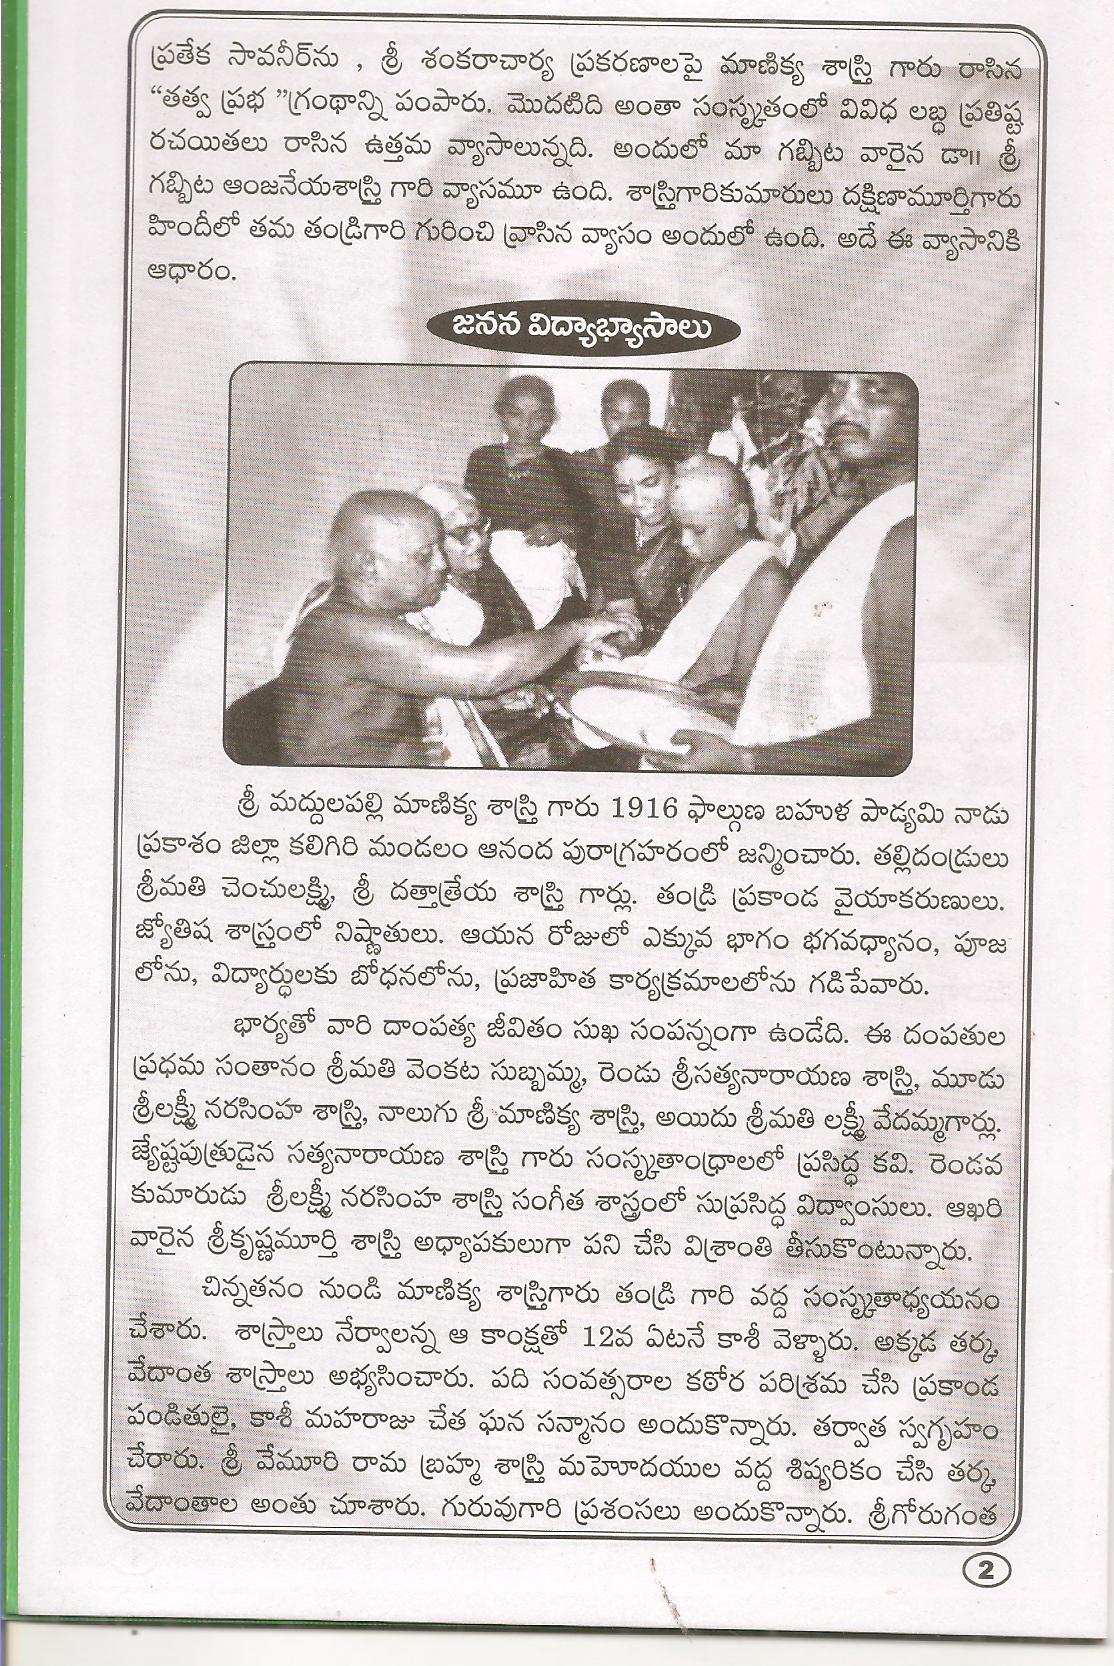 ప్రతేక సావనీర్‌ను , శ్రీ శంకరాచార్య ప్రకరణాలపై మాణిక్య శాస్త్రి గారు రాసిన
“తత్వ ప్రభ ”గ్రంథాన్ని పంపారు. మొదటిది అంతా సంస్కృతంలో వివిధ లబ్ధ ప్రతిష్ట
రచయితలు రాసిన ఉత్తమ వ్యాసాలున్నది. అందులో మా గబ్బిట వారైన డా॥ శ్రీ
గబ్బిట ఆంజనేయశాస్త్రి గారి వ్యాసమూ ఉంది. శాస్త్రిగారికుమారులు దక్షిణామూర్తిగారు
హిందీలో తమ తండ్రిగారి గురించి వ్రాసిన వ్యాసం అందులో ఉంది. అదే ఈ వ్యాసానికి
ఆధారం.
జనన విద్యాభ్యాసాలు
శ్రీ మద్దులపల్లి మాణిక్య శాస్త్రి గారు 1916 ఫాల్గుణ బహుళ పాడ్యమి నాడు
ప్రకాశం జిల్లా కలిగిరి మండలం ఆనంద పురాగ్రహరంలో జన్మించారు. తల్లిదండ్రులు
శ్రీమతి చెంచులక్ష్మి, శ్రీ దత్తాత్రేయ శాస్త్రి గార్లు. తండ్రి ప్రకాండ వైయాకరుణులు.
జ్యోతిష శాస్త్రంలో నిష్ణాతులు. ఆయన రోజులో ఎక్కువ భాగం భగవధ్యానం, పూజ
లోను, విద్యార్ధులకు బోధనలోను, ప్రజాహిత కార్యక్రమాలలోను గడిపేవారు.
భార్యతో వారి దాంపత్య జీవితం సుఖ సంపన్నంగా ఉండేది. ఈ దంపతుల
ప్రధమ సంతానం శ్రీమతి వెంకట సుబ్బమ్మ, రెండు శ్రీసత్యనారాయణ శాస్త్రి, మూడు
శ్రీలక్ష్మీ నరసింహ శాస్త్రి, నాలుగు శ్రీ మాణిక్య శాస్త్రి, అయిదు శ్రీమతి లక్ష్మీ వేదమ్మగార్లు.
జ్యేష్టపుత్రుడైన సత్యనారాయణ శాస్త్రి గారు సంస్కృతాంధ్రాలలో ప్రసిద్ధ కవి. రెండవ
కుమారుడు శ్రీలక్ష్మీ నరసింహ శాస్త్రి సంగీత శాస్త్రంలో సుప్రసిద్ధ విద్వాంసులు. ఆఖరి
వారైన శ్రీకృష్ణమూర్తి శాస్త్రి అధ్యాపకులుగా పని చేసి విశ్రాంతి తీసుకొంటున్నారు.
చిన్నతనం నుండి మాణిక్య శాస్త్రిగారు తండ్రి గారి వద్ద సంస్కృతాధ్యయనం
చేశారు. శాస్త్రాలు నేర్వాలన్న ఆ కాంక్షతో 12వ ఏటనే కాశీ వెళ్ళారు. అక్కడ తర్క,
వేదాంత శాస్త్రాలు అభ్యసించారు. పది సంవత్సరాల కఠోర పరిశ్రమ చేసి ప్రకాండ
పండితులై, కాశీ మహరాజు చేత ఘన సన్మానం అందుకొన్నారు. తర్వాత స్వగృహం
చేరారు. శ్రీ వేమూరి రామ బ్రహ్మ శాస్త్రి మహెూదయుల వద్ద శిష్యరికం చేసి తర్క,
వేదాంతాల అంతు చూశారు. గురువుగారి ప్రశంసలు అందుకొన్నారు. శ్రీగోరుగంత
2